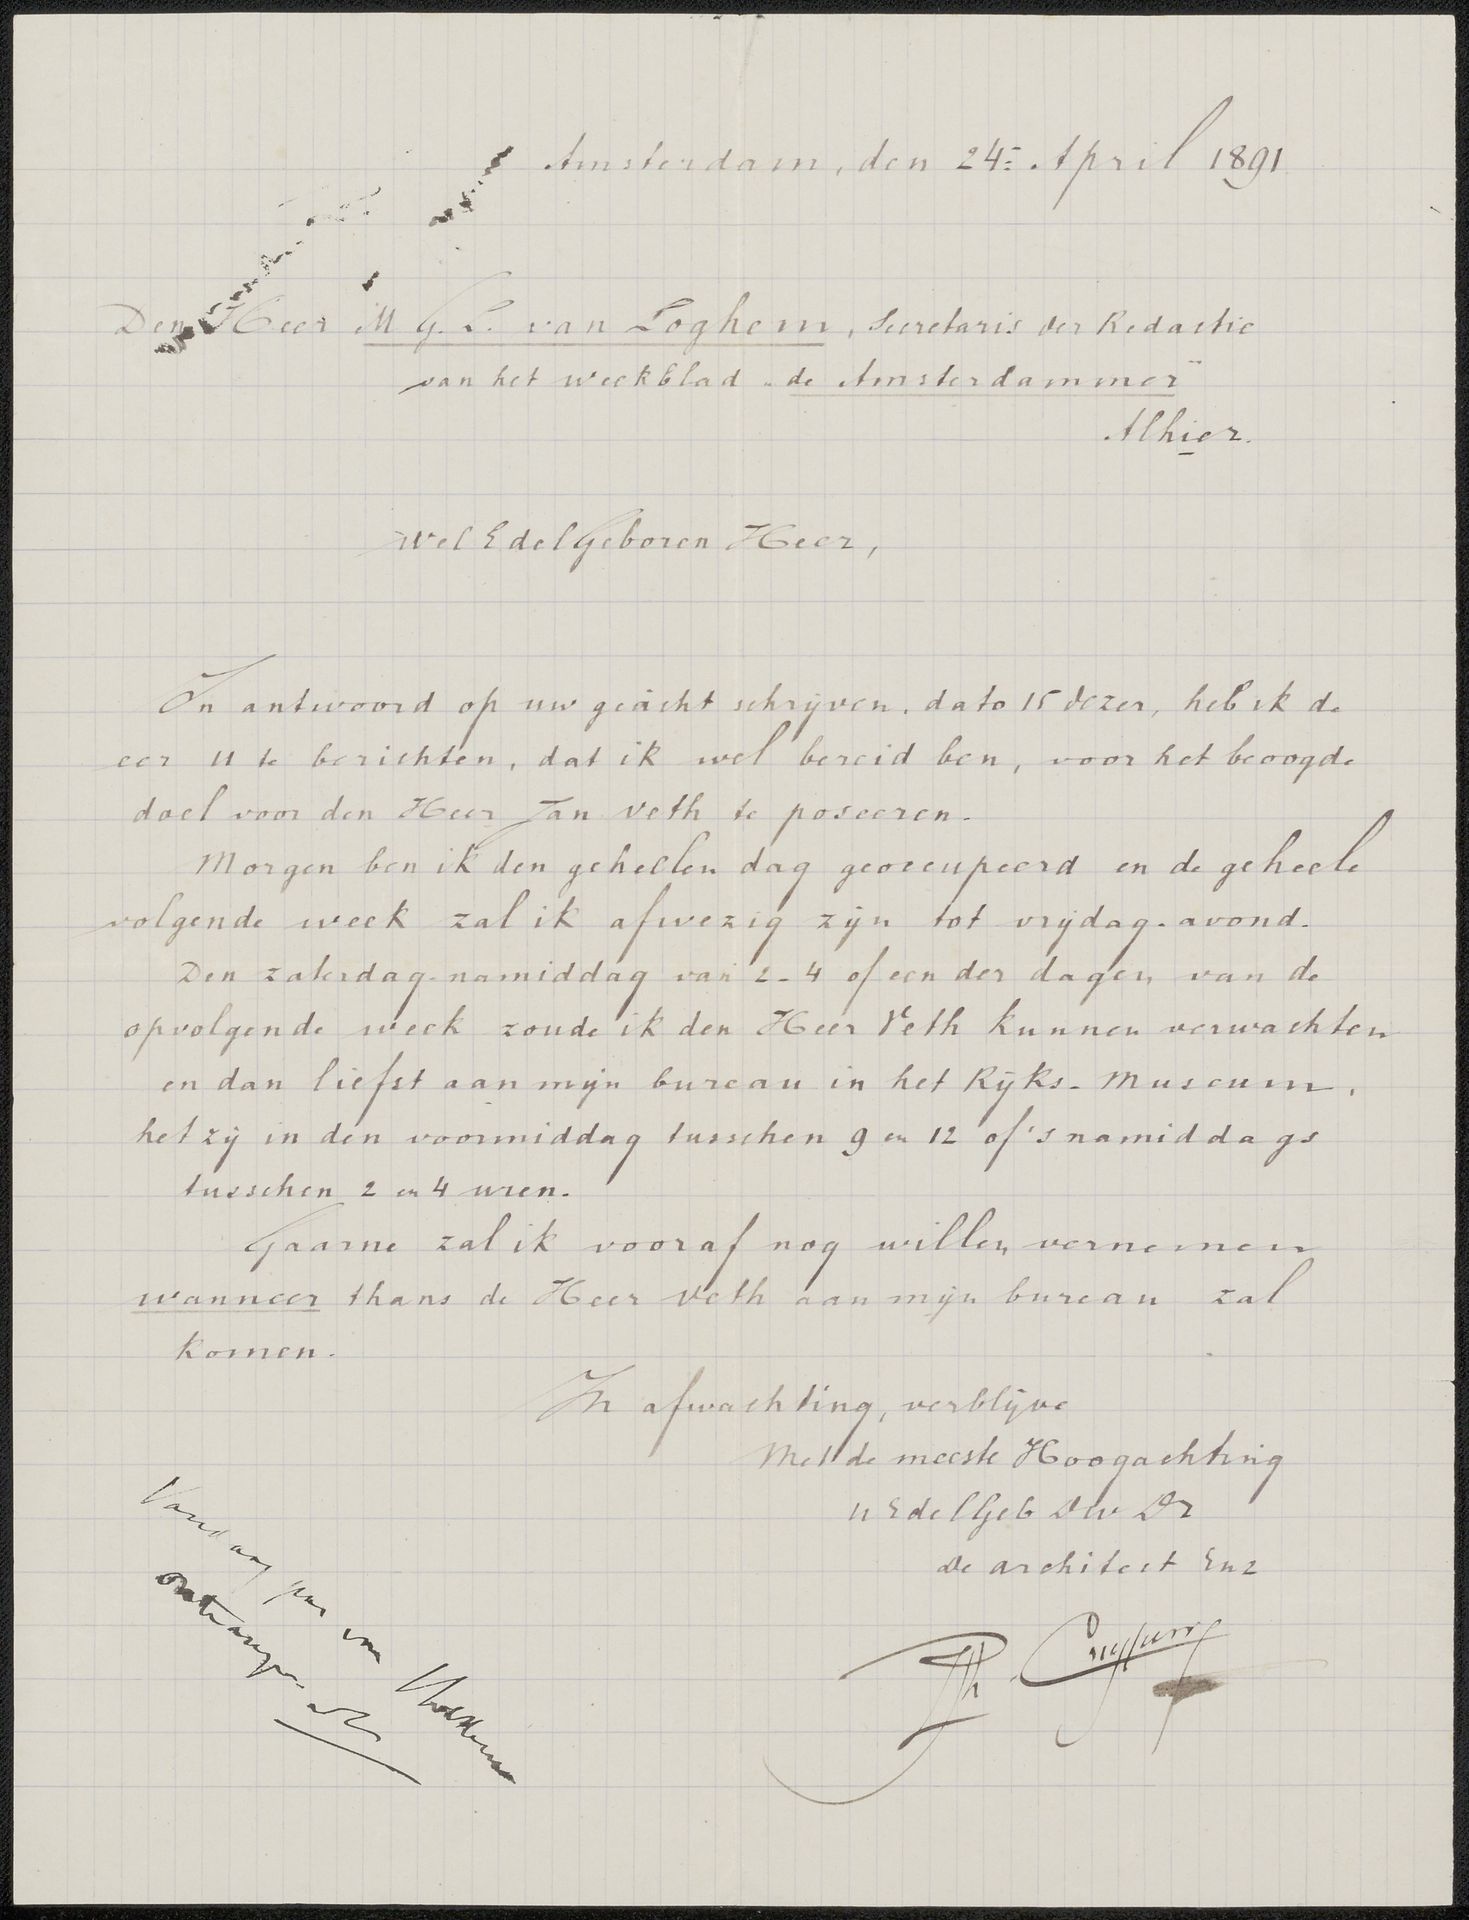 Amsterdam, den 24= April 1891
Den Heer M G. L. van Loghem, Secretaris der Redactie
van het weekblad „de Amsterdammer"
Alhier.
Wel Edel Geboren Heer,
In antwoord op uw geacht schrijven, dato 15 dezer, heb ik de
eer U te berichten, dat ik wel bereid ben, voor het beoogde
doel voor den Heer Jan Veth te poseeren.
Morgen ben ik den geheelen dag geoccupeerd en de geheele
volgende week zal ik afwezig zijn tot vrijdag-avond.
Den zaterdag-namiddag van 2-4 of een der dagen van de
opvolgende week zoude ik den Heer Veth kunnen verwachten
en dan liefst aan mijn bureau in het Rijks-Museum,
het zij in den voormiddag tusschen 9 en 12 of 's namiddags
tusschen 2 en 4 uren.
Gaarne zal ik vooraf nog willen vernemen
wanneer thans de Heer Veth aan mijn bureau zal
komen.
In afwachting, verblijve
Met de meeste Hoogachting
U Edel Geb Dw Dr
De architect Enz
Vandaag pas van
ontvangen